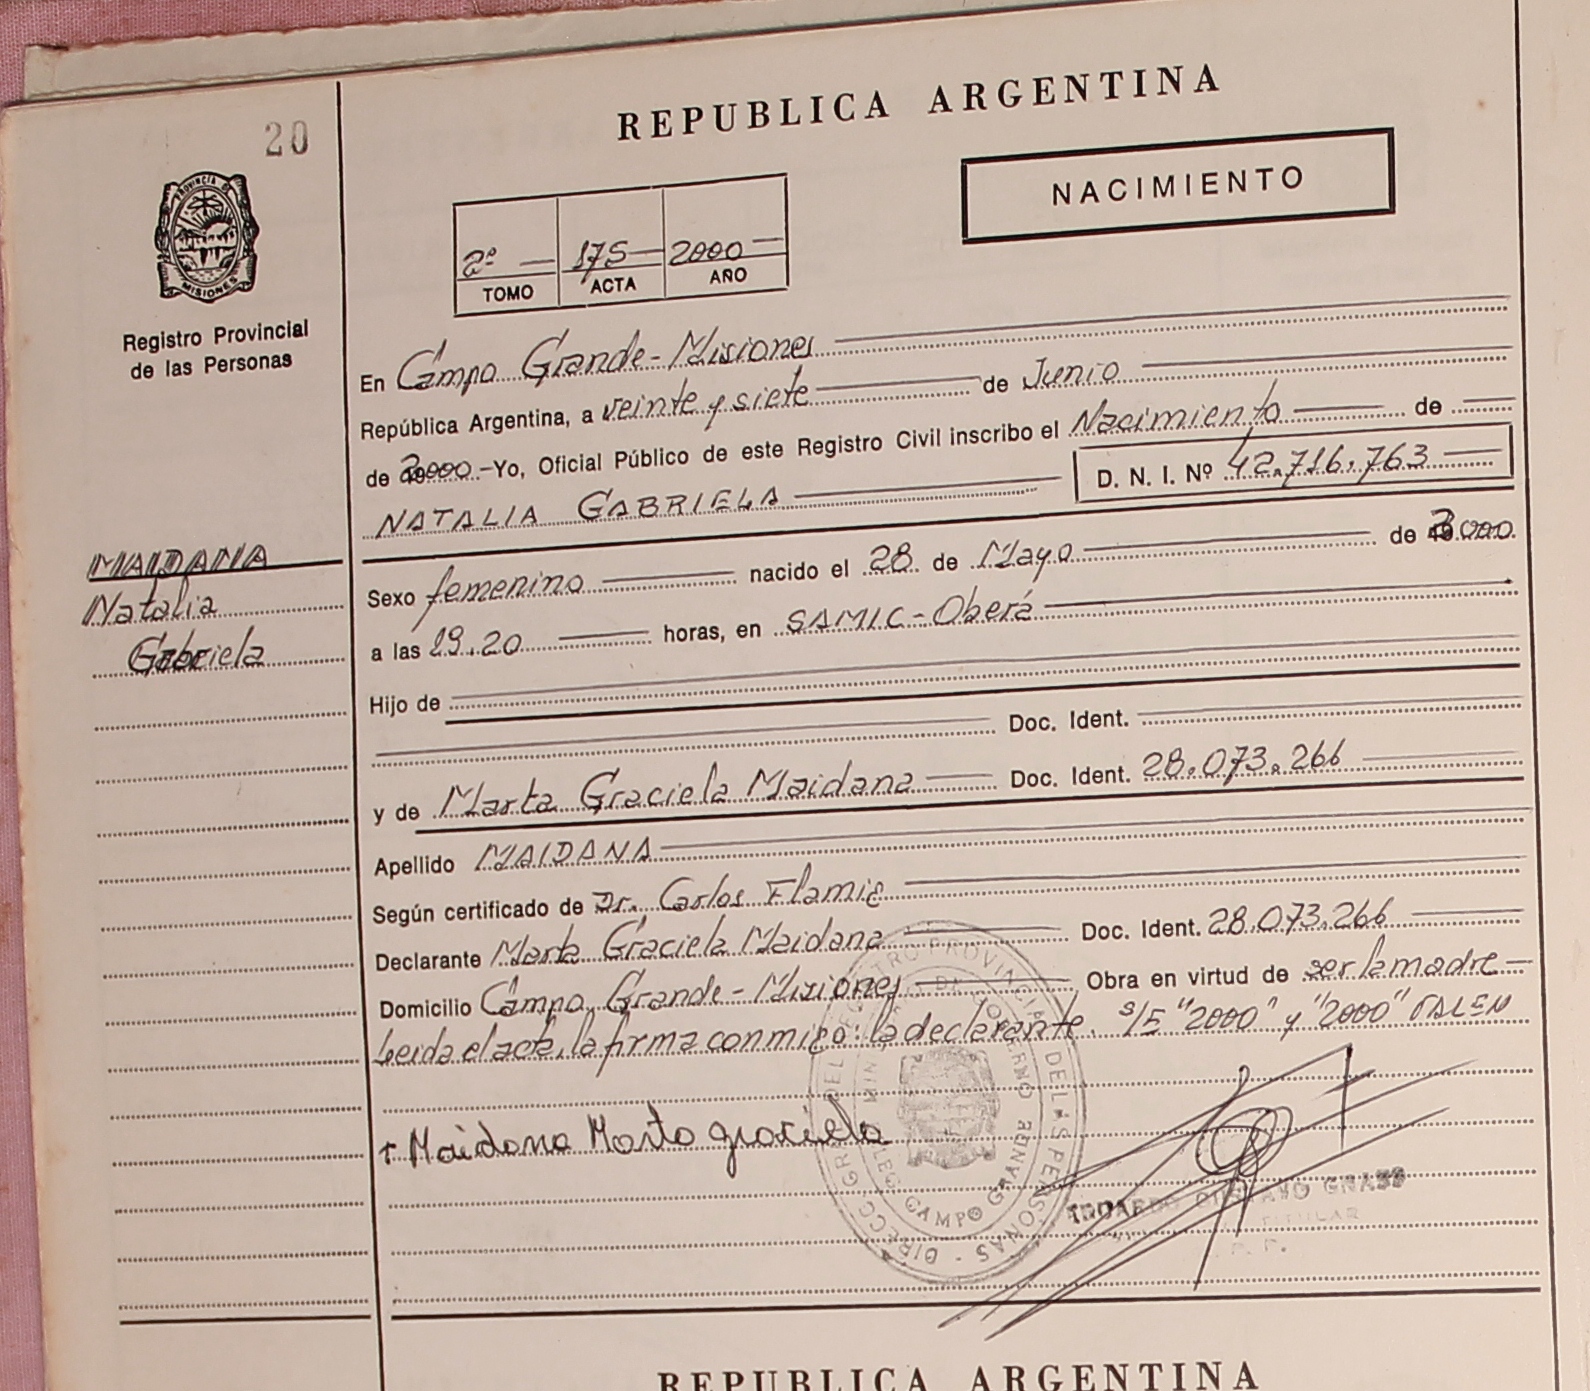 20
REPUBLICA ARGENTINA
PROVINCIA DE
MISIONES
Registro Provincial
de las Personas
NACIMIENTO
2º 175 2000
TOMO ACTA AÑO
En Campo Grande - Misiones
República Argentina, a veinte y siete de Junio
de 2000 - Yo, Oficial Público de este Registro Civil inscribo el Nacimiento de
NATALIA GABRIELA D. N. I. Nº 42.716.763
MAIDANA
Natalia
Gabriela
Sexo femenino nacido el 28 de Mayo de 2000
a las 19.20 horas, en SAMIC - Oberá
Hijo de
Doc. Ident.
y de Marta Graciela Maidana Doc. Ident. 28.073.266
Apellido MAIDANA
Según certificado de Dr. Carlos
Declarante Marta Graciela Maidana Doc. Ident. 28.073.266
Domicilio Campo Grande - Misiones Obra en virtud de ser la madre -
Leida el acta, la firma conmigo: la declarante. S/E "2000" y "2000" VALEN
Maidana Marta graciela
CAMPO GRANDE
TITULAR
REPUBLICA ARGENTINA